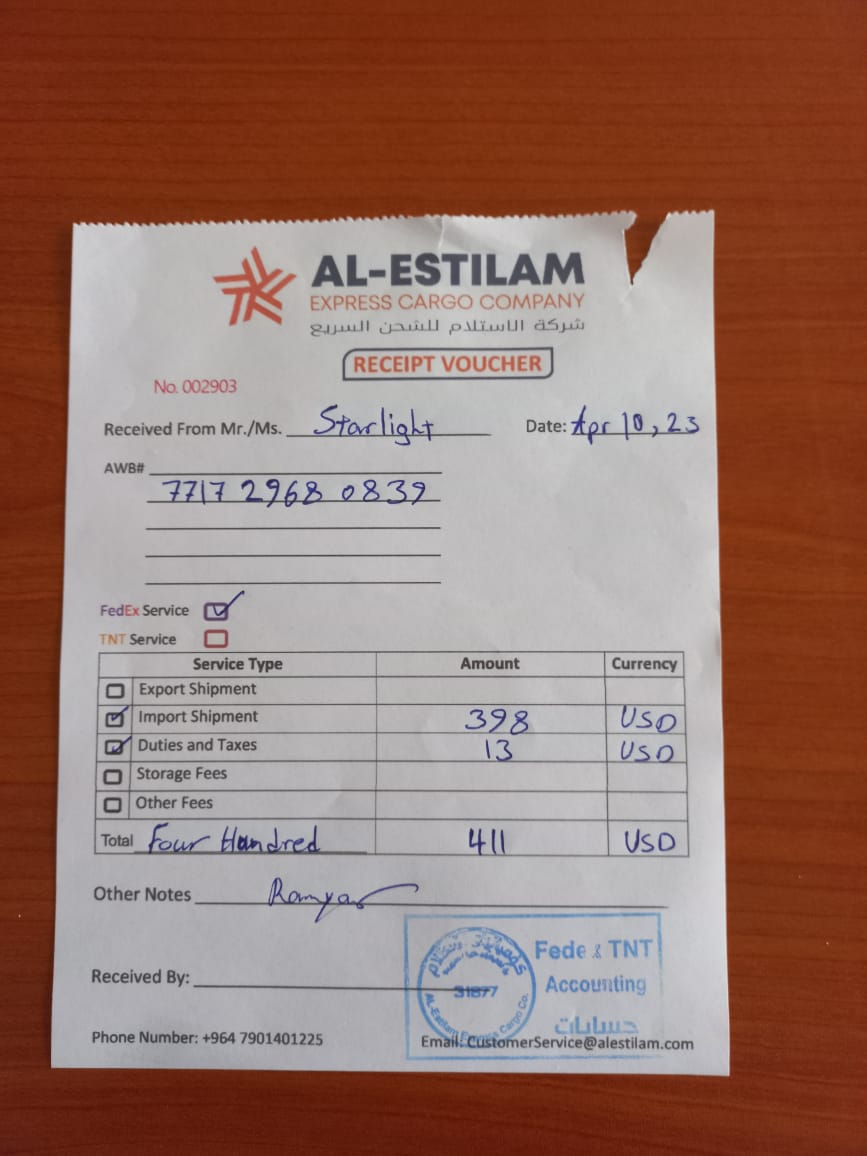 AL-ESTILAM
EXPRESS CARGO COMPANY
شركة الاستلام للشحن السريع
RECEIPT VOUCHER
No. 002903
Received From Mr./Ms. Starlight Date: Apr 10, 23
AWB#
7717 2968 0839
FedEx Service
TNT Service
Service Type Amount Currency
Export Shipment
Import Shipment 398 USD
Duties and Taxes 13 USD
Storage Fees
Other Fees
Total Four Handred 411 USD
Other Notes Ramyar
Fedex TNT
Accounting
حسابات
31877
AL-Estilam Express Cargo Co.
Received By:
Phone Number: +964 7901401225 Email: CustomerService@alestilam.com